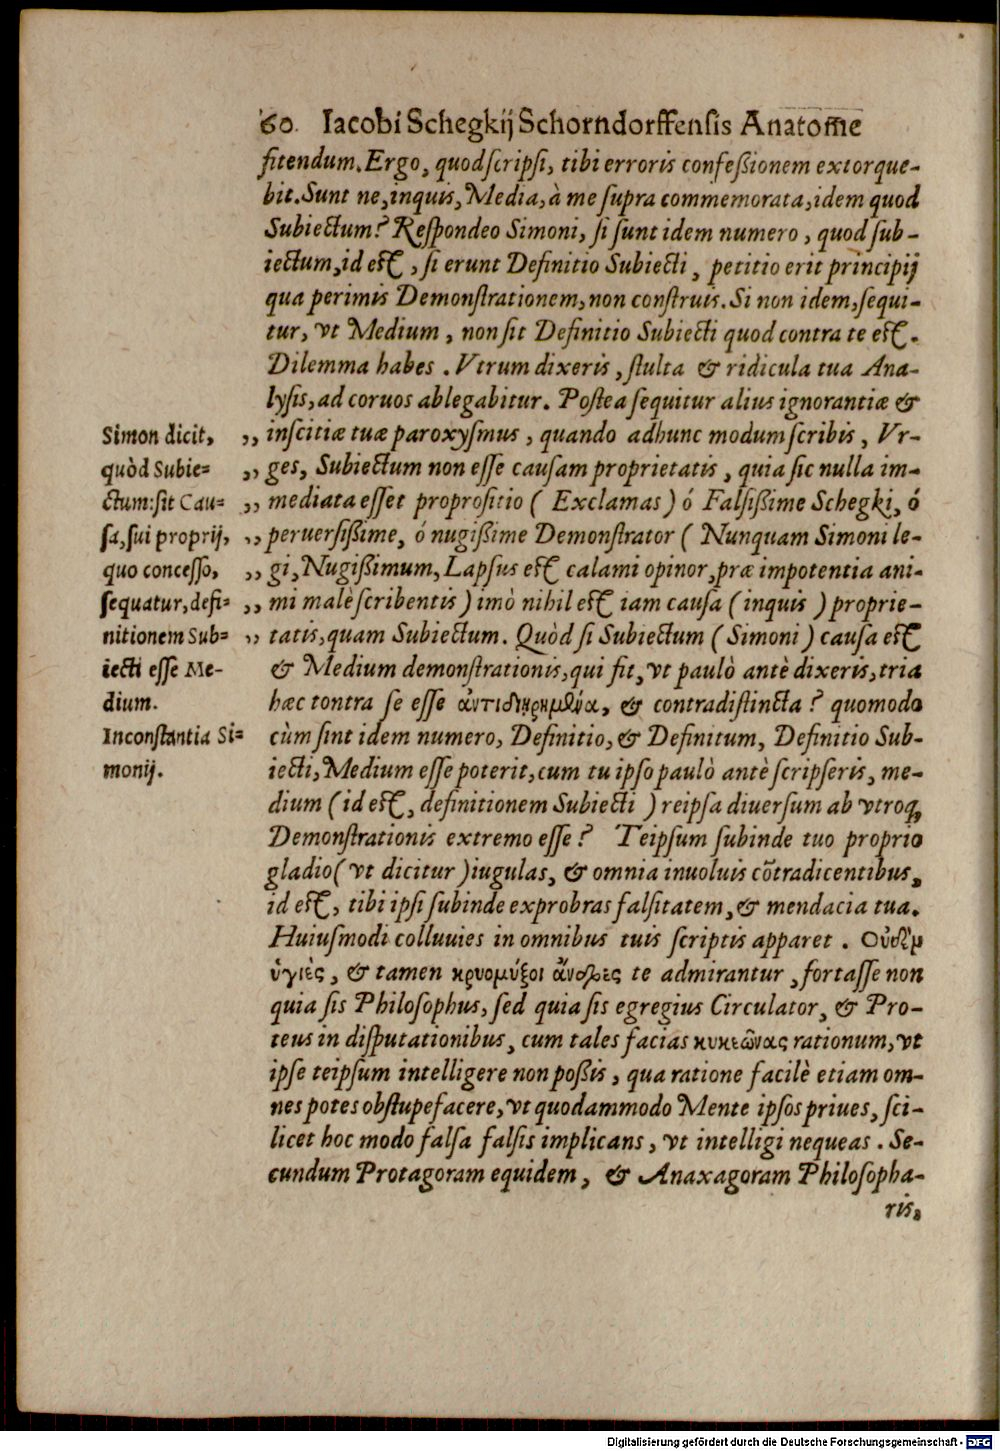 60. Iacobi Schegkij Schorndorffensis Anatome
fitendum. Ergo, quod scripsi, tibi erroris confeßionem extorque-
bit. Sunt ne, inquis, Media, à me supra commemorata, idem quod
Subiectum? Respondeo Simoni, si sunt idem numero, quod sub-
iectum, id est, si erunt Definitio Subiecti, petitio erit principij
qua perimis Demonstrationem, non construis. Si non idem, sequi-
tur, vt Medium, non sit Definitio Subiecti quod contra te est.
Dilemma habes. Vtrum dixeris, stulta & ridicula tua Ana-
lysis, ad coruos ablegabitur. Postea sequitur alius ignorantiæ &
,, inscitiæ tuæ paroxysmus, quando adhunc modum scribis, Vr-
,, ges, Subiectum non esse causam proprietatis, quia sic nulla im-
,, mediata esset proprositio ( Exclamas ) ó Falsißime Schegki, ó
,, peruersißime, ó nugißime Demonstrator ( Nunquam Simoni le-
,, gi, Nugißimum, Lapsus est calami opinor, præ impotentia ani-
,, mi malè scribentis ) imò nihil est iam causa ( inquis ) proprie-
,, tatis, quam Subiectum. Quòd si Subiectum ( Simoni ) causa est
& Medium demonstrationis, qui fit, vt paulò antè dixeris, tria
hæc tontra se esse ἀντιδιῃρημένα, & contradistincta? quomodo
cùm sint idem numero, Definitio, & Definitum, Definitio Sub-
iecti, Medium esse poterit, cum tu ipso paulò antè scripseris, me-
dium ( id est, definitionem Subiecti ) reipsa diuersum ab vtroq;
Demonstrationis extremo esse? Teipsum subinde tuo proprio
gladio ( vt dicitur ) iugulas, & omnia inuoluis cõtradicentibus,
id est, tibi ipsi subinde exprobras falsitatem, & mendacia tua.
Huiusmodi colluuies in omnibus tuis scriptis apparet. Οὐδὲν
ὑγιὲς, & tamen κρυομύξοι ἄνδρες te admirantur, fortasse non
quia sis Philosophus, sed quia sis egregius Circulator, & Pro-
teus in disputationibus, cum tales facias κυκεῶνας rationum, vt
ipse teipsum intelligere non poßis, qua ratione facilè etiam om-
nes potes obstupefacere, vt quodammodo Mente ipsos priues, sci-
licet hoc modo falsa falsis implicans, vt intelligi nequeas. Se-
cundum Protagoram equidem, & Anaxagoram Philosopha-
ris,
Simon dicit,
quòd Subie=
ctum: sit Cau=
sa, sui proprij,
quo concesso,
sequatur, defi=
nitionem Sub=
iecti esse Me-
dium.
Inconstantia Si=
monij.
Digitalisierung gefördert durch die Deutsche Forschungsgemeinschaft - DFG